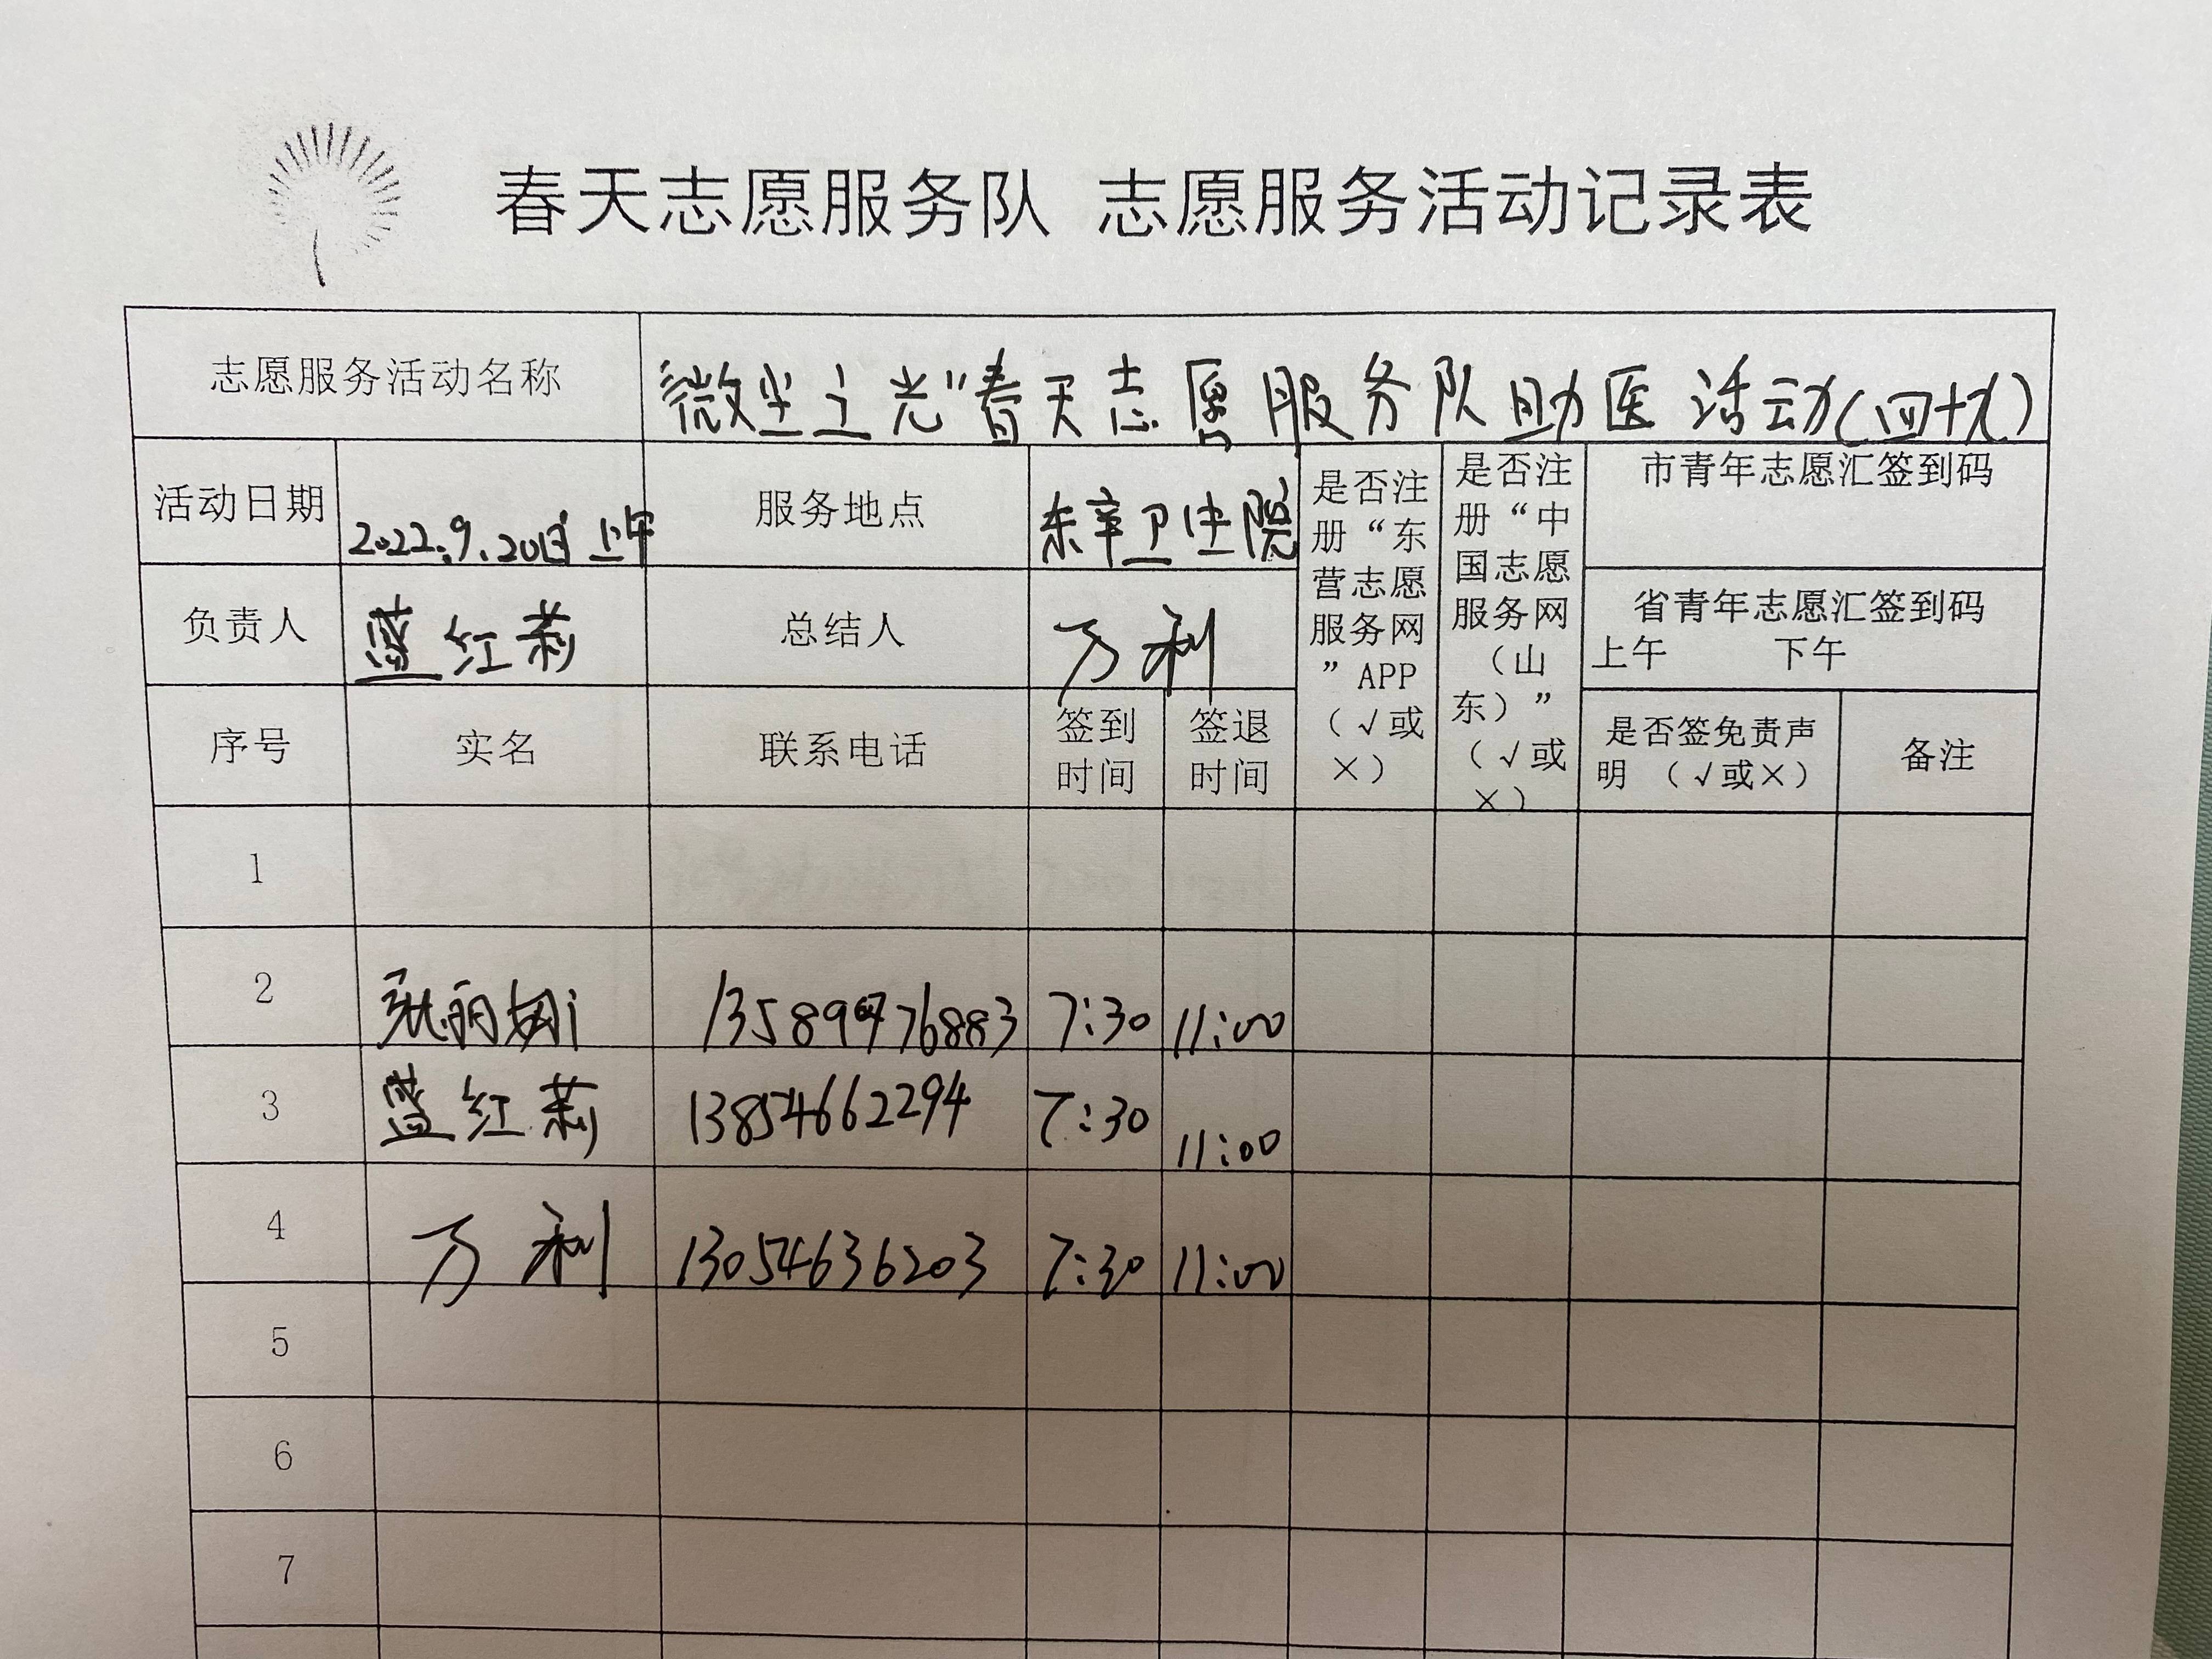 春天志愿服务队 志愿服务活动记录表
志愿服务活动名称 微尘之光"春天志愿服务队助医活动(四十九)
活动日期 2022.9.20日上午 服务地点 东辛卫生院 是否注册“东营志愿服务网”APP（√或×） 是否注册“中国志愿服务网（山东）”（√或×） 市青年志愿汇签到码
负责人 蓝红莉 总结人 万利 省青年志愿汇签到码
上午 下午
序号 实名 联系电话 签到时间 签退时间 是否签免责声明 （√或×） 备注
1
2 张丽娜 7:30 11:00
3 蓝红莉 13854662294 7:30 11:00
4 万利 13054636203 7:30 11:00
5
6
7